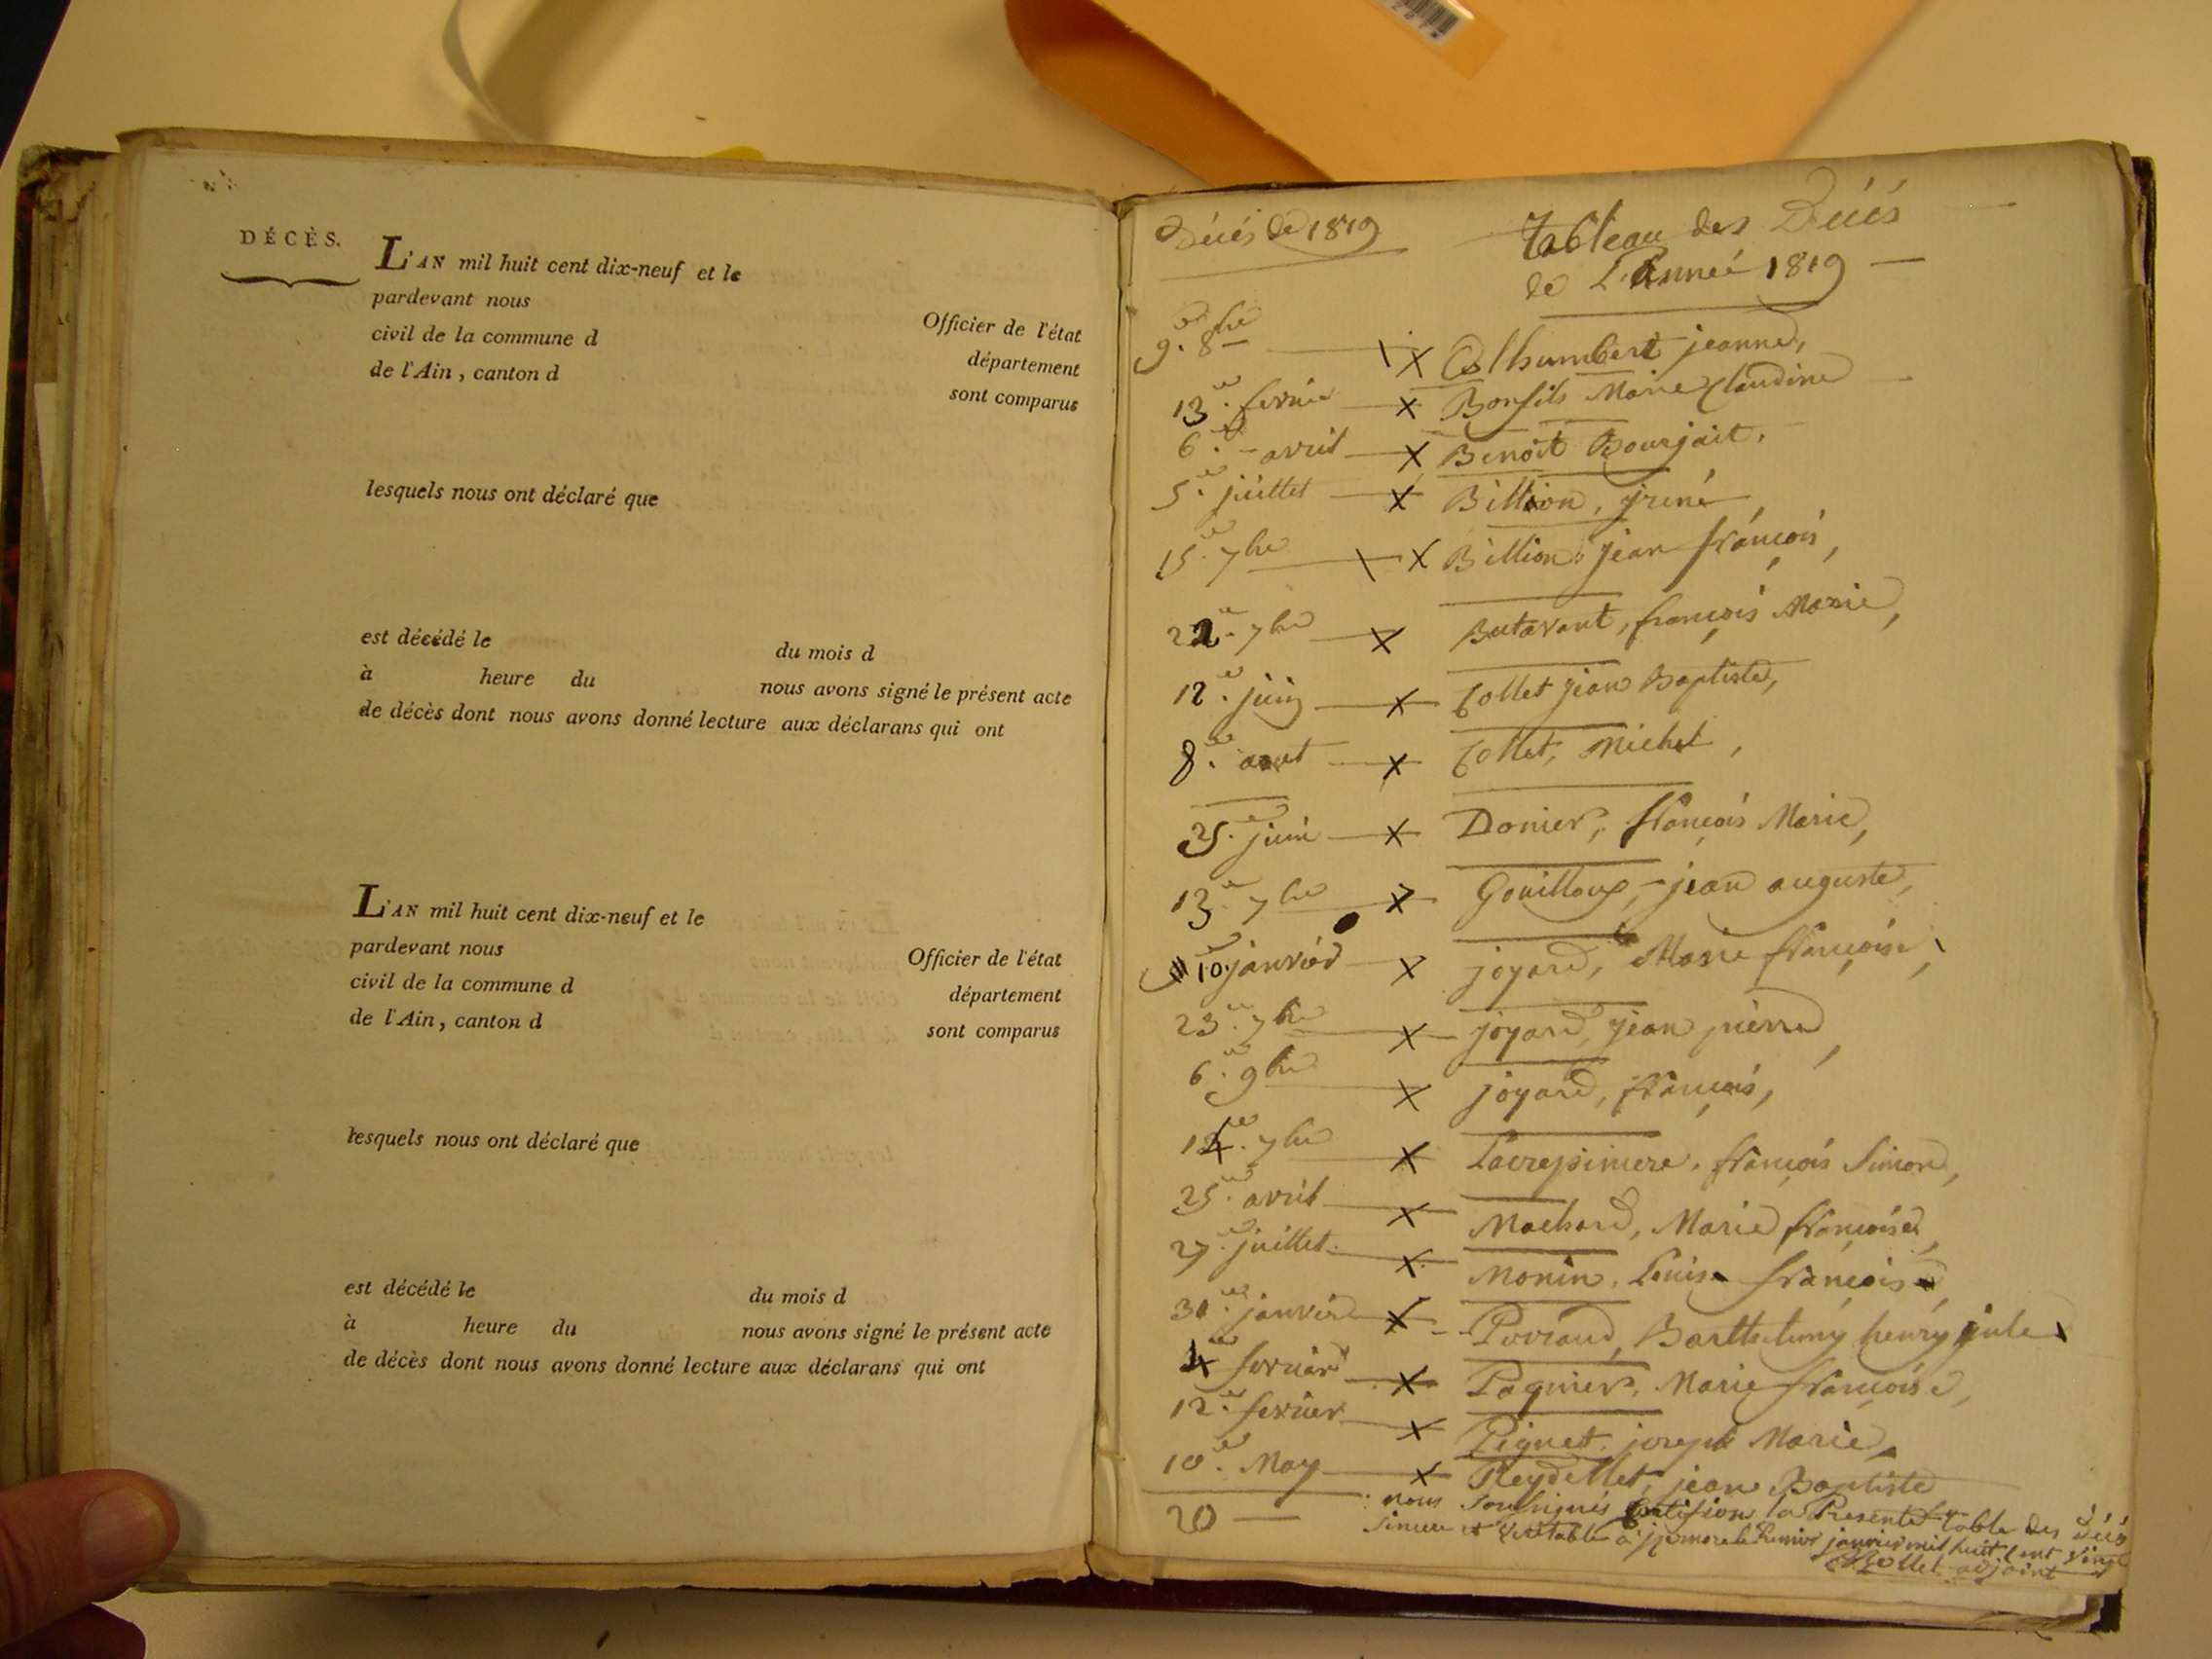 DÉCÈS.
L'AN mil huit cent dix-neuf et le
pardevant nous
Officier de l'état
civil de la commune d
département
de l'Ain, canton d
sont comparus
lesquels nous ont déclaré que
est décédé le
du mois d
à heure du
nous avons signé le présent acte
de décès dont nous avons donné lecture aux déclarans qui ont
L'AN mil huit cent dix-neuf et le
pardevant nous
Officier de l'état
civil de la commune d
département
de l'Ain, canton d
sont comparus
lesquels nous ont déclaré que
est décédé le
du mois d
à heure du
nous avons signé le présent acte
de décès dont nous avons donné lecture aux déclarans qui ont
Décés de 1819
Tableau des Décés
de L'Anneé 1819
9. 8bre x Alhumbert jeanne,
13. fevrier x Bonfils Marie Claudine
6. avril x Benoit Bourjait.
5. juillet x Billion, jrené
15. 7bre x Billion, jean françois,
22. 7bre x Butavant, françois Marie,
12. juin x Collet jean Baptiste,
8. aout x Collet, Michel,
25. juin x Donier, françois Marie,
13. 7bre x Gouilloux, jean auguste,
10. janvier x joyard, Marie françoise,
23. 7bre x joyard, jean pierre,
6. 9bre x joyard, françois,
14. 7bre x Lacrepiniere, françois Simon,
25. avril x Machard, Marie françoise,
27. juillet x Monin, Louis françois
30. janvier x Barthelemy henry jule
4 fevrier x Paquier, Marie françoise,
12. fevrier x Piquet, joseph Marie,
10. May x Reydellet, jean Baptiste
20 — nous Soussignés Certifions la Presente table des Décés
Sincere et Veritable à le Premier janvier mil huit Cent Vingt
Collet adjoint